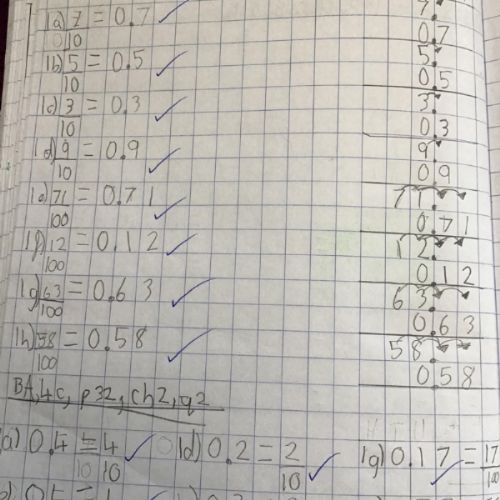 1a) 7/10 = 0.7
7.
0.7
1b) 5/10 = 0.5
5.
0.5
1c) 3/10 = 0.3
3.
0.3
1d) 9/10 = 0.9
9.
0.9
1e) 71/100 = 0.71
71.
0.71
1f) 12/100 = 0.12
12.
0.12
1g) 63/100 = 0.63
63.
0.63
1h) 58/100 = 0.58
58.
0.58
BA, 4c, p32, ch2, q2
a) 0.4 = 4/10
1d) 0.2 = 2/10
1g) 0.17 = 17/10